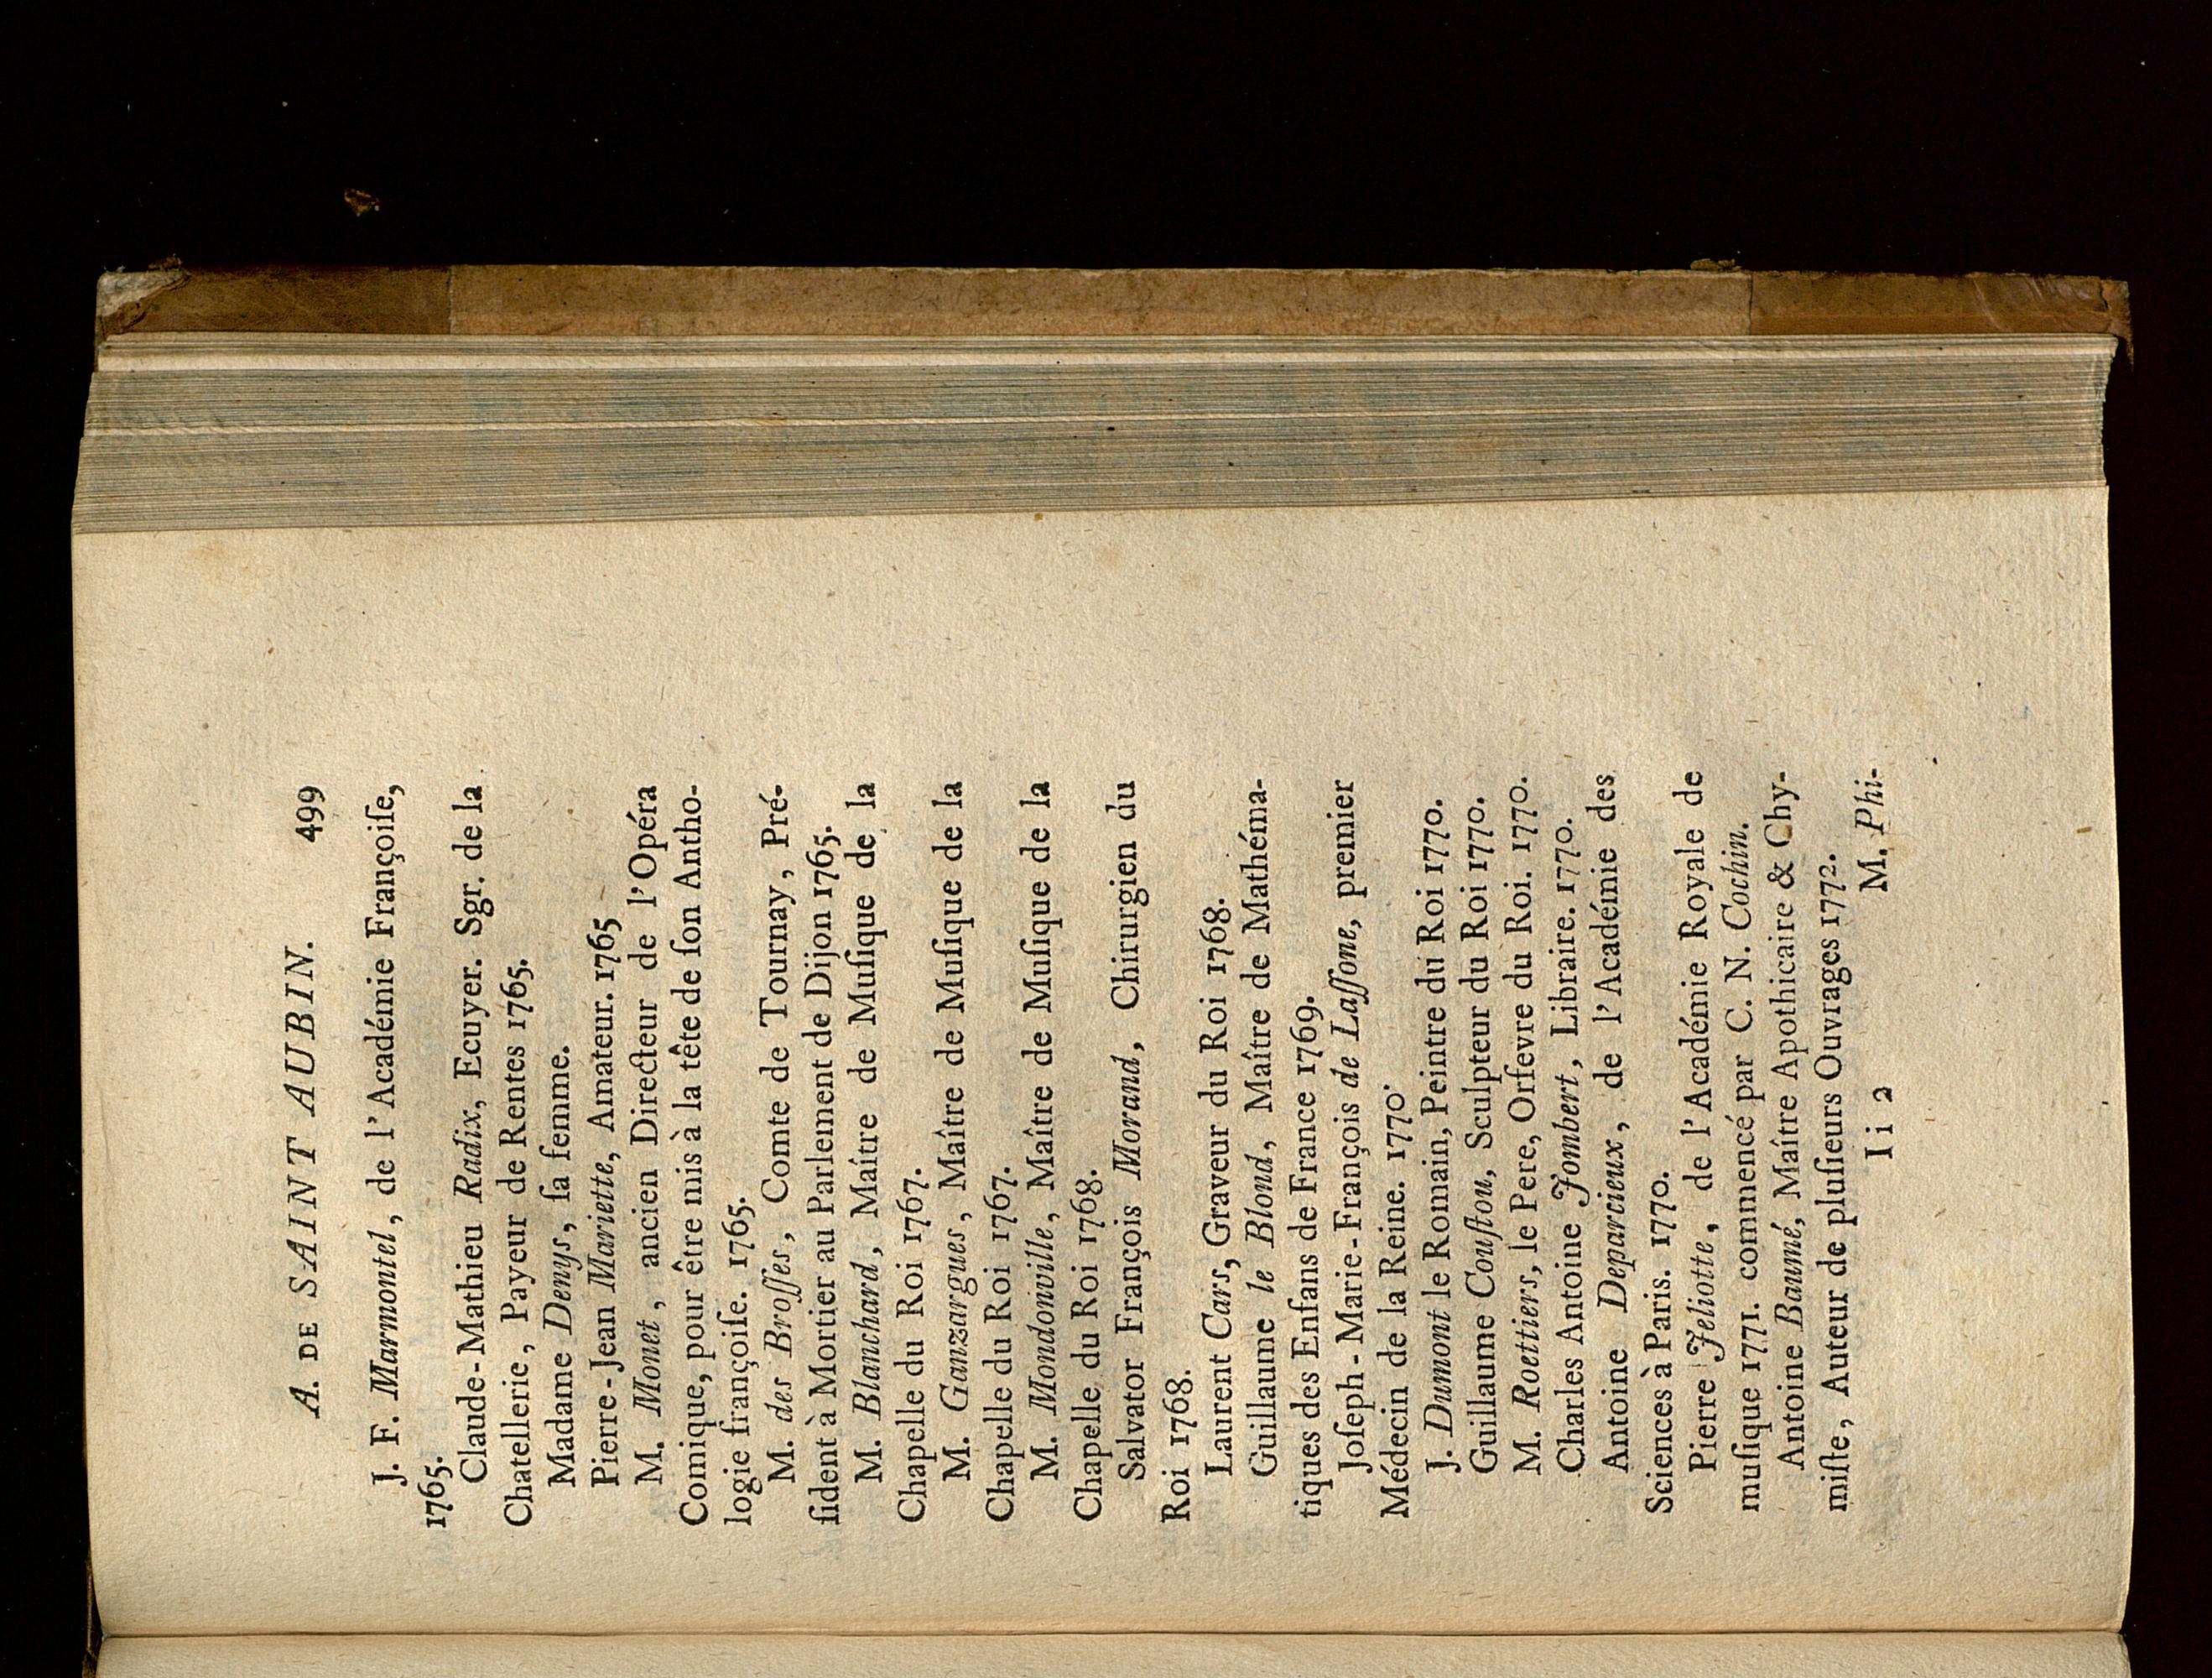 A. DE SAINT AUBIN. 499
J. F. Marmontel, de l'Académie Françoiſe,
1765.
Claude-Mathieu Radix, Ecuyer. Sgr. de la
Chatellerie, Payeur de Rentes 1765.
Madame Denys, ſa femme.
Pierre-Jean Mariette, Amateur. 1765
M. Monet, ancien Directeur de l'Opéra
Comique, pour être mis à la tête de ſon Antho-
logie françoiſe. 1765.
M. des Broſſes, Comte de Tournay, Pré-
ſident à Mortier au Parlement de Dijon 1765.
M. Blanchard, Maître de Muſique de la
Chapelle du Roi 1767.
M. Ganzargues, Maître de Muſique de la
Chapelle du Roi 1767.
M. Mondonville, Maître de Muſique de la
Chapelle du Roi 1768.
Salvator François Morand, Chirurgien du
Roi 1768.
Laurent Cars, Graveur du Roi 1768.
Guillaume le Blond, Maître de Mathéma-
tiques des Enfans de France 1769.
Joſeph-Marie-François de Laſſone, premier
Médecin de la Reine. 1770.
J. Dumont le Romain, Peintre du Roi 1770.
Guillaume Couſtou, Sculpteur du Roi 1770.
M. Roettiers, le Pere, Orfevre du Roi. 1770.
Charles Antoine Jombert, Libraire. 1770.
Antoine Deparcieux, de l'Académie des
Sciences à Paris. 1770.
Pierre Jeliotte, de l'Académie Royale de
muſique 1771. commencé par C. N. Cochin.
Antoine Baumé, Maître Apothicaire & Chy-
miſte, Auteur de pluſieurs Ouvrages 1772.
Ii 2 M. Phi-